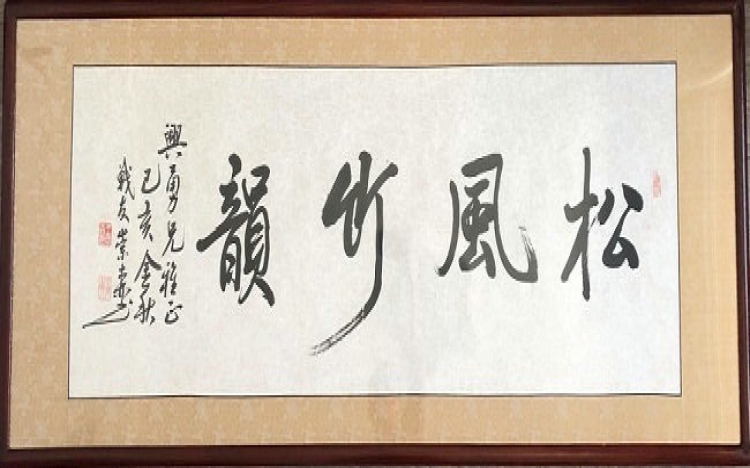 松風竹韻
興勇兄雅正
己亥金秋
戰友崇